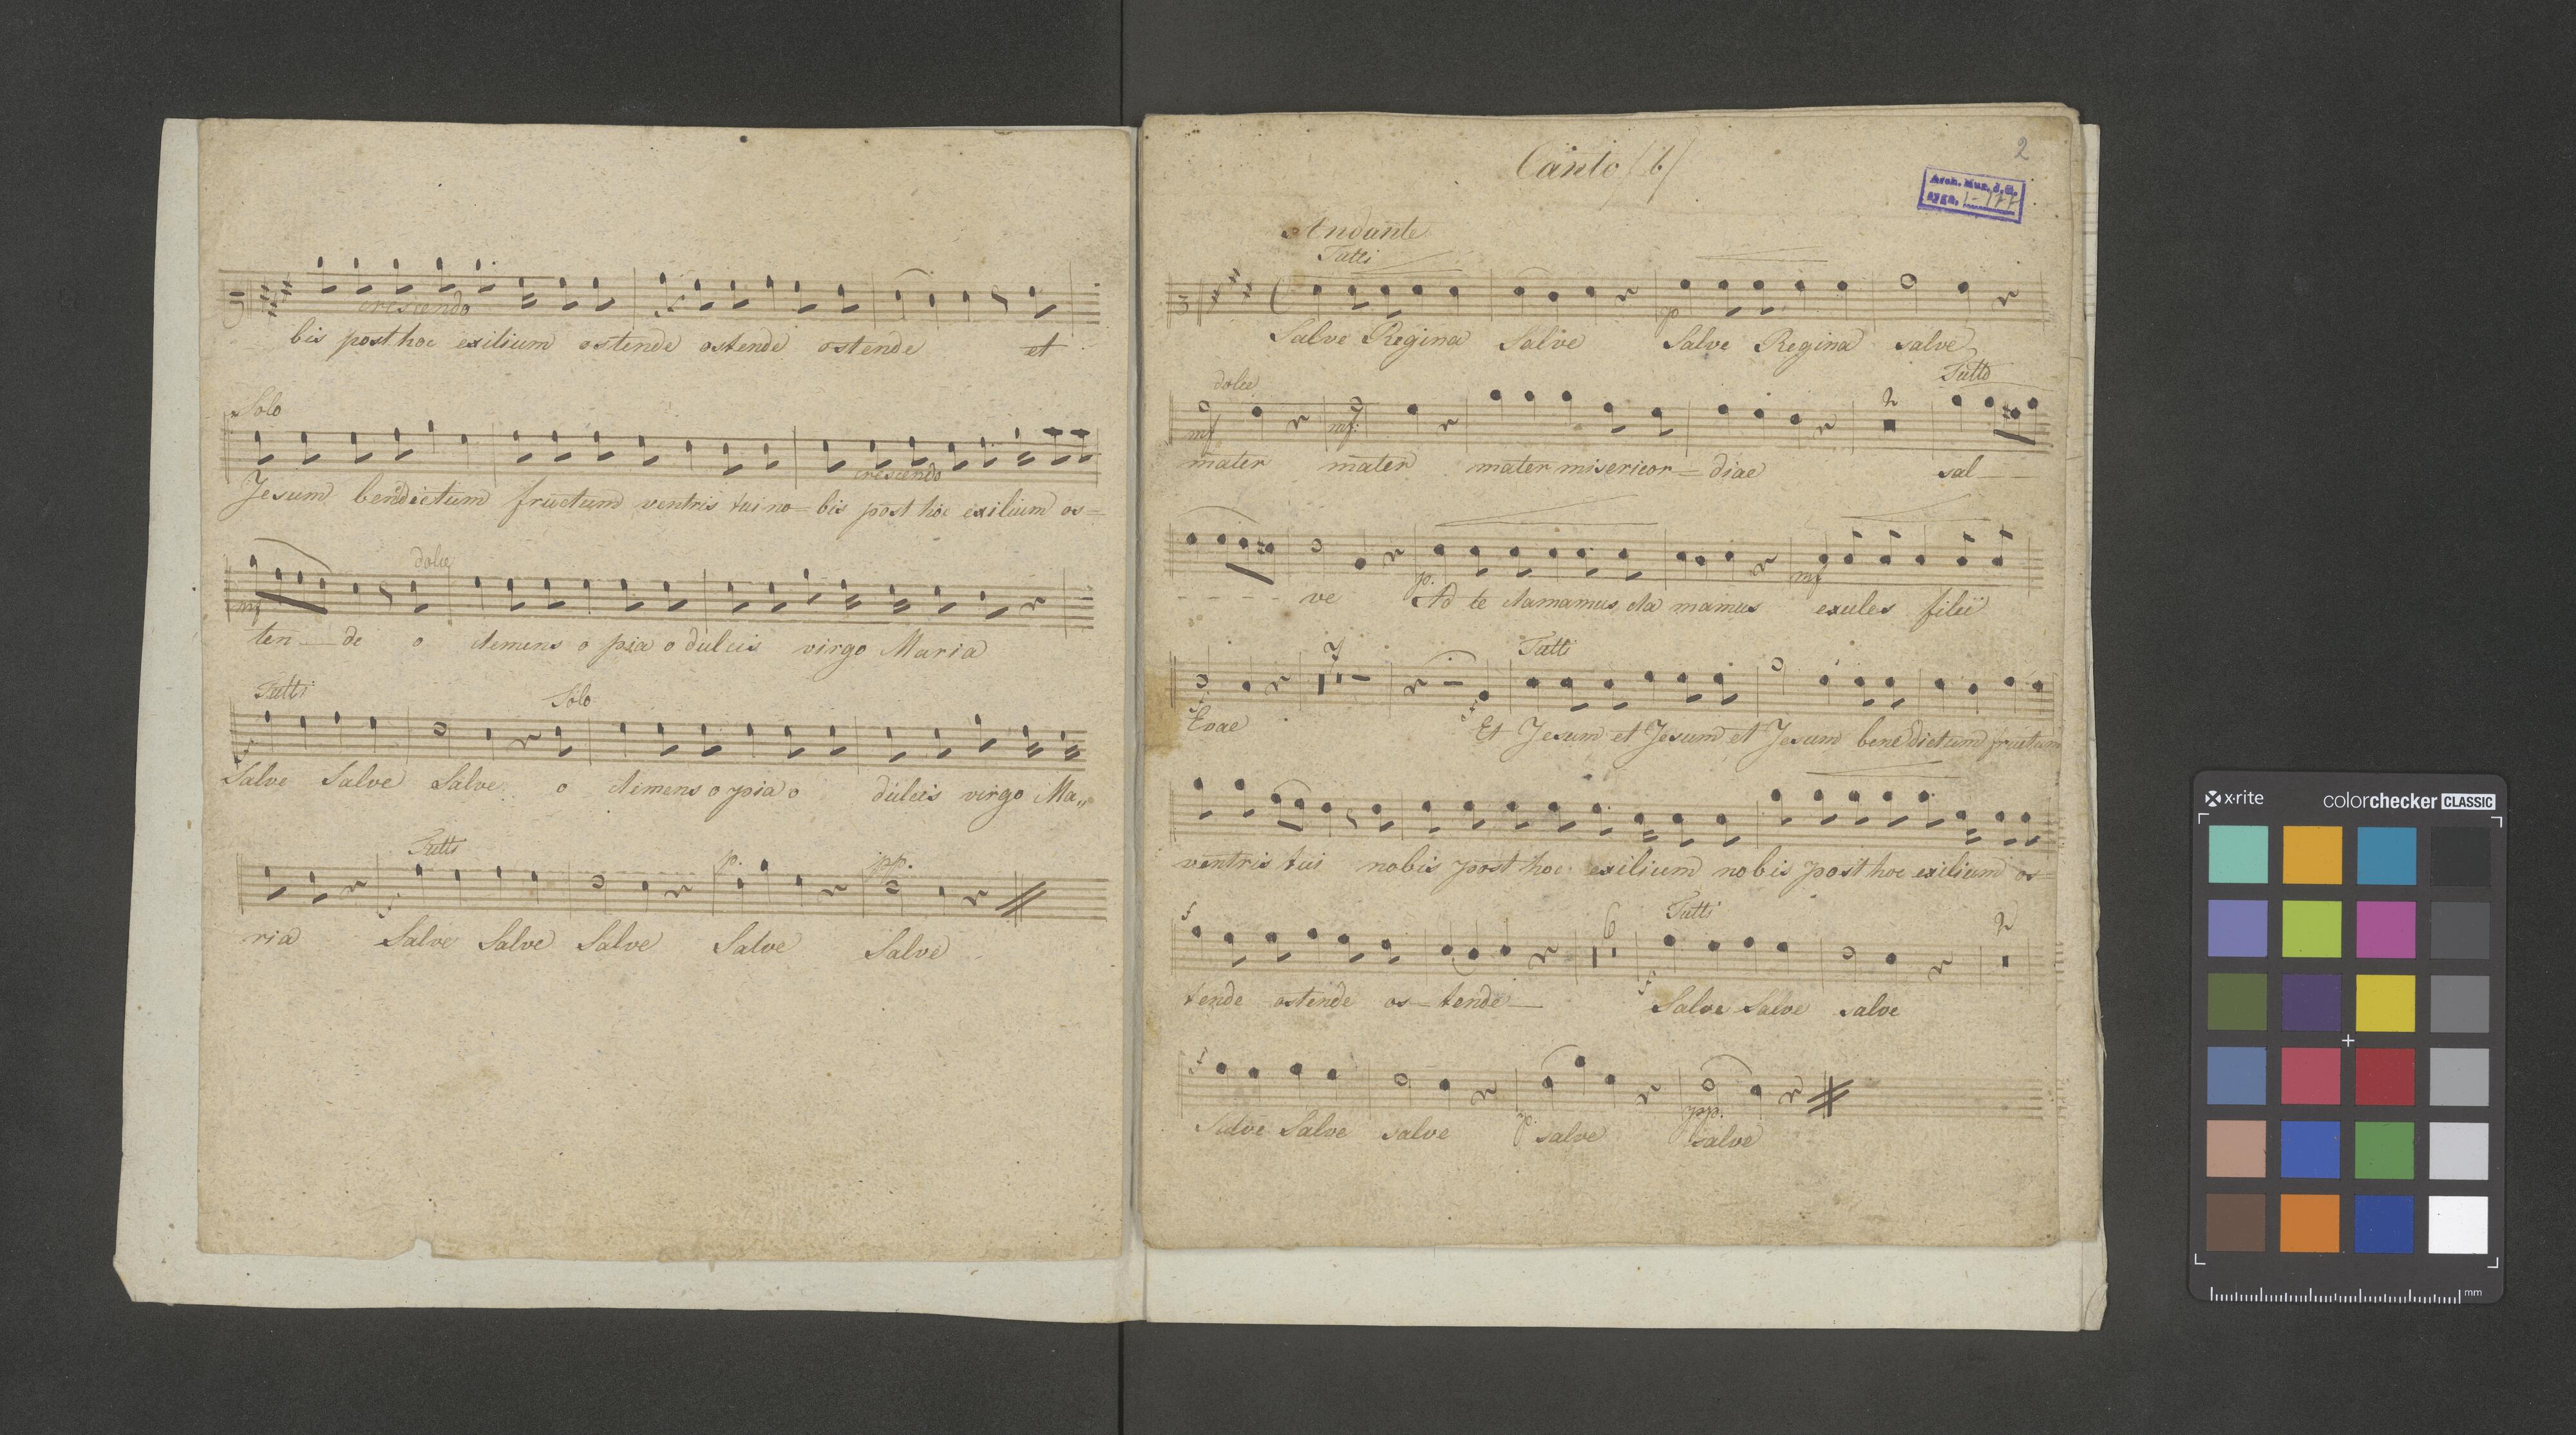 crescendo
bis post hoc exilium ostende ostende ostende et
Solo
crescendo
Jesum benedictum fructum ventris tui no- bis post hoc exilium os-
dolce
mf
ten - de o clemens o pia o dulcis virgo Maria
Tutti Solo
f
Salve Salve Salve o clemens o pia o dulcis virgo Ma„
Tutti p. pp.
f
ria Salve Salve Salve Salve Salve
Canto (b)
2
Arch. Mus. J. G.
sygn. I-177
Andante
Tutti
p
Salve Regina Salve Salve Regina salve
dolce 2 Tutto
mf mf
mater mater mater misericor- diae sal -
p. mf
- - - - ve Ad te clamamus cla mamus exules filii
7 Tutti
f f
Evae Et Jesum et Jesum et Jesum benedictum fructum
ventris tui nobis post hoc exilium nobis post hoc exilium os=
f 6 Tutti 2
f
tende ostende os - tende - Salve Salve salve
f
pp.
Salve Salve salve p salve salve
x-rite colorchecker CLASSIC
mm